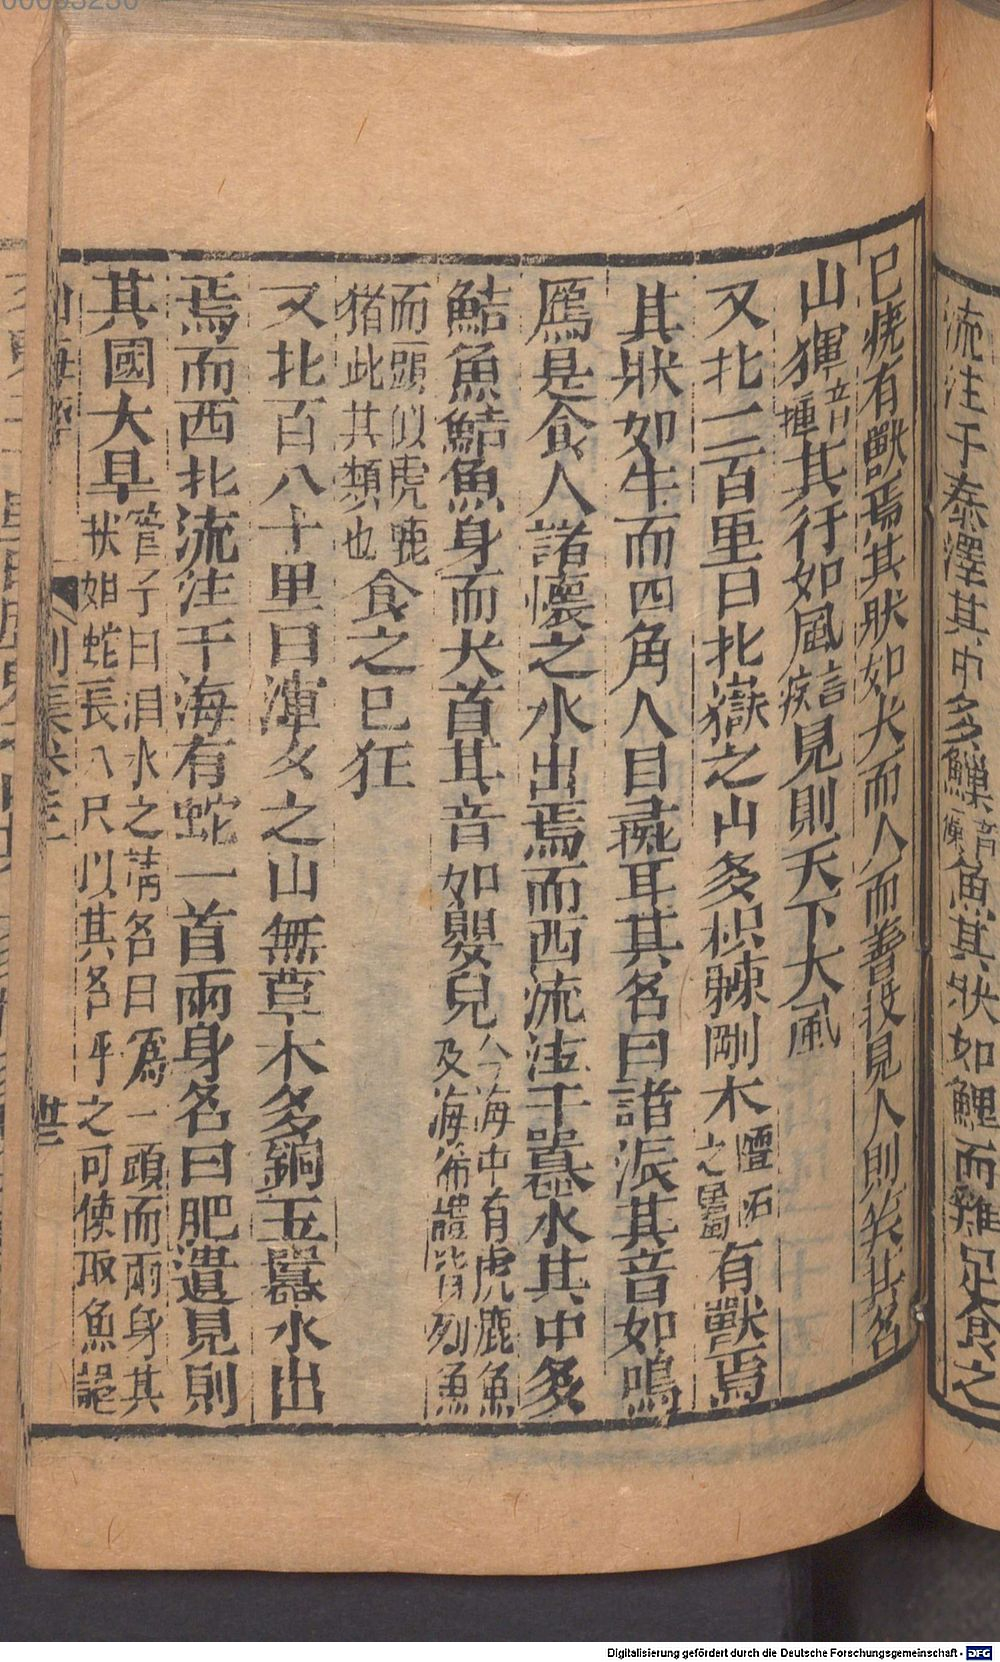 流注于泰澤其中多鱳音僳魚其狀如鯉而雞足食之
已疣有獸焉其狀如犬而人面善投見人則笑其名
山㺀音揮其行如風言疾見則天下大風
又北二百里曰北嶽之山多枳棘剛木檀柘之屬有獸焉
其狀如牛而四角人目彘耳其名曰諸派其音如鳴
鴈是食人諸懷之水出焉而西流注于囂水其中多
鮚魚鮚魚身而犬首其音如嬰兒今海中有虎鹿魚及海豨體皆列魚
而頭似虎鹿猪此其類也食之已狂
又北百八十里曰渾夕之山無草木多銅玉囂水出
焉而西北流注于海有蛇一首兩身名曰肥遺見則
其國大旱管子曰涸水之精名曰爲一頭而兩身其狀如蛇長八尺以其名呼之可使取魚龜
山海經 別集卷三 廿三
00053250
Digitalisierung gefördert durch die Deutsche Forschungsgemeinschaft - DFG